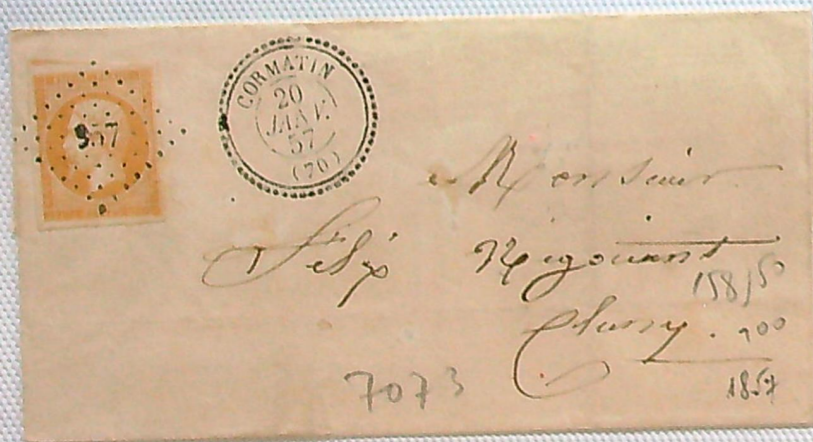 957
CORMATIN
20
JANV.
57
(70)
Monsieur
Félix
158/50
Cluny.
900
7073
1857